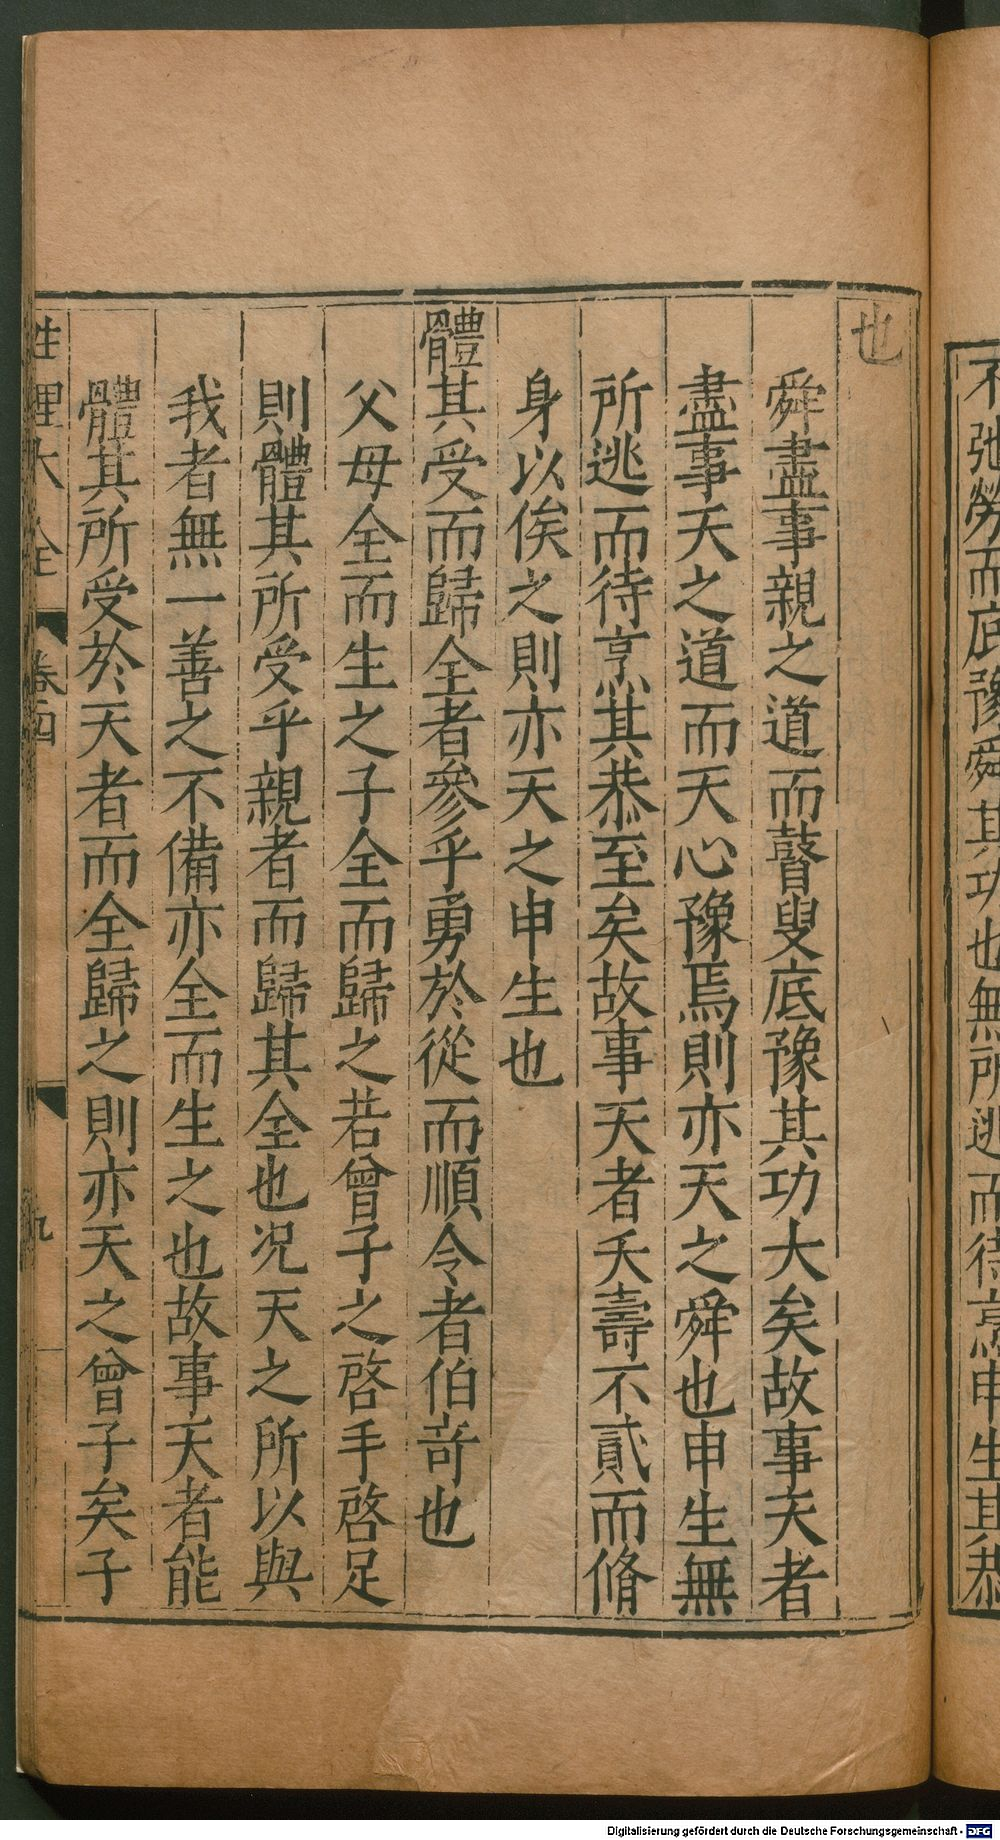 不弛勞而底豫舜其功也無所逃而待烹申生其恭
也
舜盡事親之道而瞽叟底豫其功大矣故事天者
盡事天之道而天心豫焉則亦天之舜也申生無
所逃而待烹其恭至矣故事天者夭壽不貳而脩
身以俟之則亦天之申生也
體其受而歸全者參乎勇於從而順令者伯奇也
父母全而生之子全而歸之若曾子之啓手啓足
則體其所受乎親者而歸其全也况天之所以與
我者無一善之不備亦全而生之也故事天者能
體其所受於天者而全歸之則亦天之曾子矣子
性理大全 卷四 九
Digitalisierung gefördert durch die Deutsche Forschungsgemeinschaft - DFG